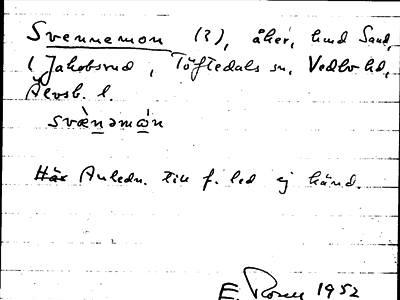 Svennemon (?), åker, hmd Sand,
1 Jakobsrud, Töftedals sn, Vedbo hd,
Älvsb. l.
svὰnəmón
Här Anledn. till f. led ej känd.
E. Rosén 1952